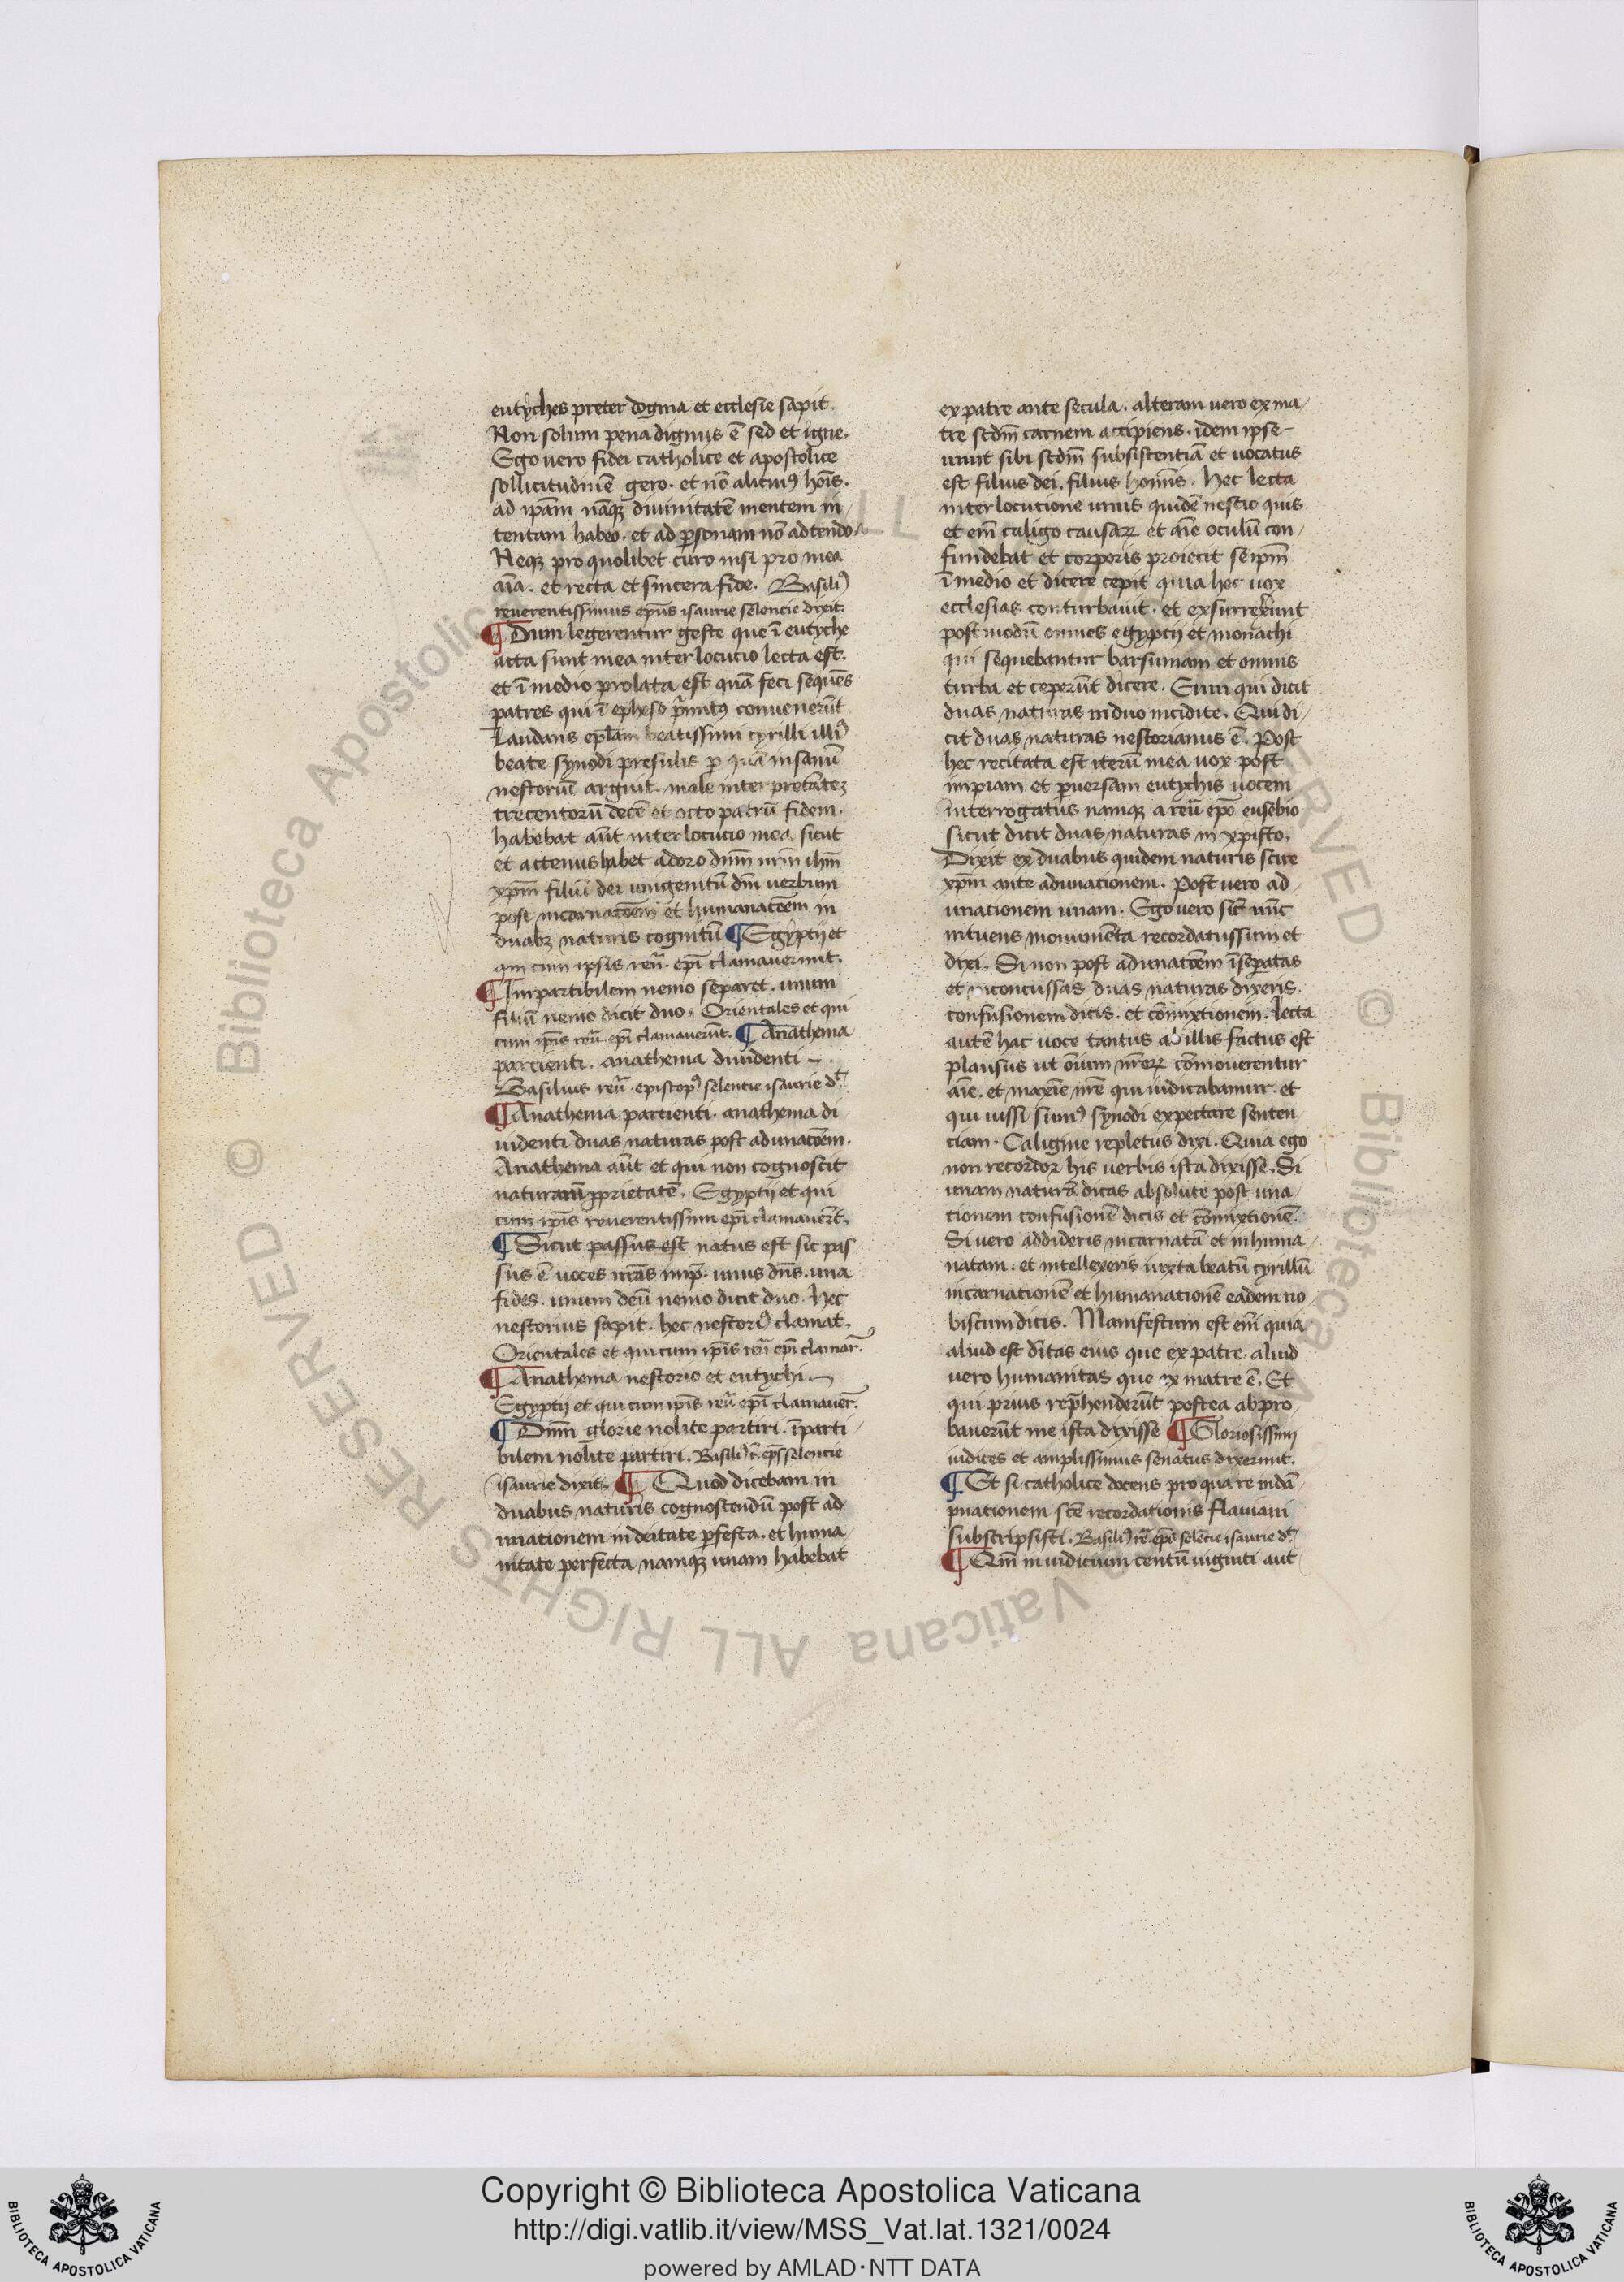 eutyches preter dogma et ecclesie sapit.
Non solum pena dignus ē sed et igne.
Ego vero fidei catholice et apostolice
sollicitudinē gero. et nō alicuiꝰ hoīs.
ad ipām nāqꝫ divinitatē mentem in/
tentam habeo. et ad ꝑsonam nō adtendo.
Neqꝫ pro quolibet curo nisi pro mea
aīa. et recta et sincera fide. Basiliꝰ
reverentissimus ep̄us isaurie selencie dixit.
¶ Dum legerentur geste que ī eutyche
acta sunt mea interlocucio lecta est.
et ī medio prolata est quā feci sequēs
patres qui ī epheso pͥmitꝰ convenerūt
Laudans ep̄lam beatissimi cyrilli illiꝰ
beate synodi presulis ꝑ quā insanū
nestoriū arguit. male interpretātē
trecentorū decē et octo patrū fidem.
habebat aūt interlocucio mea sicut
et actenus habet adoro dn̄m nr̄m ihm̄
xp̄m filiū dei unigenitū dm̄ verbum
post incarnatōem et humanatōem in
duabꝫ naturis cognitū ¶ Egyptij et
qui cum ipsis reūͥ. ep̄i clamaverunt.
¶ Impartibilem nemo separet. unum
filiū nemo dicit duo. Orientales et qui
cum ip̄is reūͥ ep̄i clamaverūt. ¶ Anathema
parcienti. anathema dividenti
Basilius reūͥ. episcopꝰ selencie isaurie dt̄
¶ Anathema partienti. anathema di
videnti duas naturas post adunatōem.
Anathema aūt et qui non cognoscit
naturarū ꝓprietatē. Egyptij et qui
cum ip̄is reverentissimi ep̄i clamaverūt.
¶ Sicut passus est natus est sic pas
sus ē voces nr̄as imp̄. unus dn̄s. una
fides. unum deū nemo dicit duo. hec
nestorius sapit. hec nestoriꝰ clamat.
Orientales et qui cum ip̄is reūͥ ep̄i clamar̄.
¶ Anathema nestorio et eutychi
Egyptij et qui cum ip̄is reūͥ ep̄i clamaver̄.
¶ Dn̄m glorie nolite partiri. īparti/
bilem nolite partiri. Basiliꝰ r̄. ep̄s selencie
isaurie dixit. ¶ Quod dicebam in
duabus naturis cognoscendū post ad
unationem in deitate ꝑfecta. et huma/
nitate perfecta namqꝫ unam habebat
ex patre ante secula. alteram vero ex ma/
tre scdm̄ carnem accipiens. idem ipse
unit sibi scdm̄ subsistentiā et vocatus
est filius dei. filius hominis. Hec lecta
interlocucione unus quidē nescio quis
et em̄ caligo causarꝝ et aīe oculū con/
fundebat et corporis proiecit seip̄m
ī medio et dicere cepit quia hec vox
ecclesias conturbavit. et exsurrexerunt
postmodū omnes egyptij et monachi
qui sequebantur barsumam et omnis
turba et ceperūt dicere. Eum qui dicit
duas naturas in duo incidite. Qui di/
cit duas naturas nestorianus ē. Post
hec recitata est iterū mea vox post
impiam et ꝑversam eutychis vocem
interrogatus namqꝫ a reūͥ ep̄o eusebio
sicut dicit duas naturas in xpisto.
Dixit ex duabus quidem naturis scire
xp̄m ante adunacionem. Post vero ad/
unacionem unam. Ego vero sic̄ nūc
intuens monumēta recordatus sum et
dixi. Si non post adunatōem īseꝑatas
et inconcussas duas naturas dixeris.
confusionem dicis. et cōmixtionem. lecta
autē hac voce tantus ab illis factus est
plausus ut om̄ium nr̄orꝝ cōmoverentur
aīe. et maxīe nr̄e qui iudicabamur. et
qui iussi sumꝰ synodi expectare senten/
ciam. Caligine repletus dixi. Quia ego
non recordor his verbis ista dixisse. Si
unam naturā dicas absolute post una/
cionem confusionē dicis et cōmixtionē.
Si vero addideris incarnatā et inhuma/
natam. et intellexeris iuxta beatū cyrillū
incarnationē et humanationē eadem no
biscum dicis. Manifestum est em̄ quia
aliud est dītas eius que ex patre. aliud
vero humanitas que ex matre ē. Et
qui prius rep̄henderūt postea abpro/
baverūt me ista dixisse ¶ Gloriosissimi
iudices et amplissimus senatus dixerunt.
¶ Et si catholice docens pro qua re īdā/
pnationem sc̄e recordationis flaviani
subscripsisti. Basiliꝰ re. ep̄s selēcie isaurie dt̄
¶ Qm̄ in iudicium centū viginti aut
Copyright © Biblioteca Apostolica Vaticana
http://digi.vatlib.it/view/MSS_Vat.lat.1321/0024
powered by AMLAD·NTT DATA
BIBLIOTECA APOSTOLICA VATICANA
BIBLIOTECA APOSTOLICA VATICANA